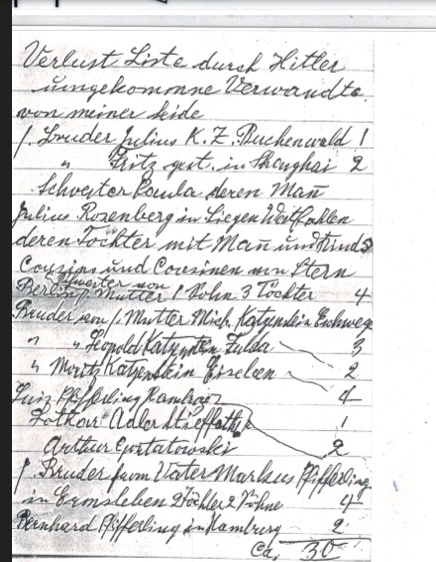 Verlust Liste durch Hitler
umgekomnne Verwandte
von meiner Seite
1. Bruder Julius K. Z. Buchenwald 1
" Fritz gest. in Shanghai 2
Schwester Paula deren Man̄
Julius Rosenberg in Siegen Westfahlen
deren Tochter mit Man̄ und Kind 5
Cousins und Cousinen von Stern
Schwester von
Berlin Mutter 1 Sohn 3 Töchter 4
Bruder von Mutter Mich. Katzenstein Eschweg
" " Leopold Katzenstein Fulda 3
" Moritz Katzenstein Eisleben 2
Pfifferling 4
Lothar Adler 1
Arthur 2
1 Bruder from Vater Markus Pfifferling
in Ermsleben 2 Töchter 2 Söhne 4
Bernhard Pfifferling in Hamburg 2
Ca. 30